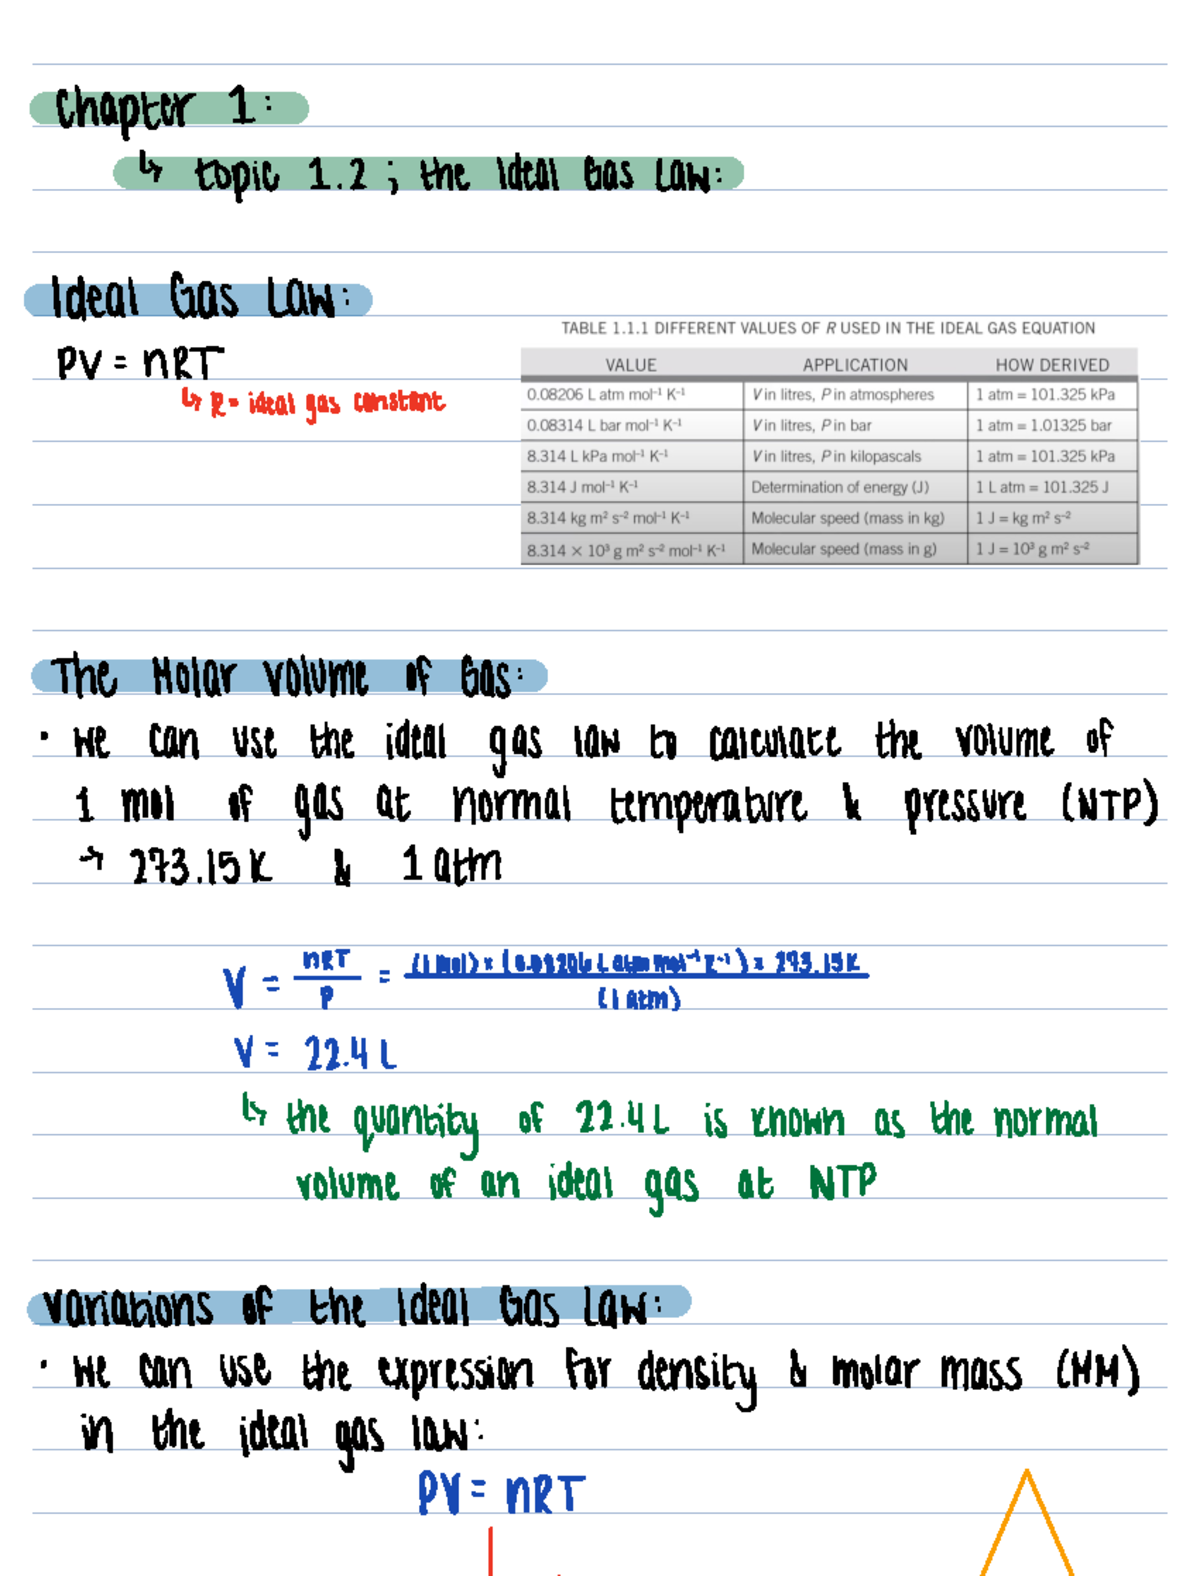 Chapter 1:
↳ topic 1.2 ; the Ideal Gas Law:
Ideal Gas Law:
PV = nRT
↳ R = ideal gas constant
TABLE 1.1.1 DIFFERENT VALUES OF R USED IN THE IDEAL GAS EQUATION
VALUE APPLICATION HOW DERIVED
0.08206 L atm mol⁻¹ K⁻¹ V in litres, P in atmospheres 1 atm = 101.325 kPa
0.08314 L bar mol⁻¹ K⁻¹ V in litres, P in bar 1 atm = 1.01325 bar
8.314 L kPa mol⁻¹ K⁻¹ V in litres, P in kilopascals 1 atm = 101.325 kPa
8.314 J mol⁻¹ K⁻¹ Determination of energy (J) 1 L atm = 101.325 J
8.314 kg m² s⁻² mol⁻¹ K⁻¹ Molecular speed (mass in kg) 1 J = kg m² s⁻²
8.314 × 10³ g m² s⁻² mol⁻¹ K⁻¹ Molecular speed (mass in g) 1 J = 10³ g m² s⁻²
The Molar Volume of Gas:
· We can use the ideal gas law to calculate the volume of
1 mol of gas at normal temperature & pressure (NTP)
→ 273.15 K & 1 atm
V = nRT/P = (1 mol) × (0.08206 L atm mol⁻¹ K⁻¹) × 273.15 K / (1 atm)
V = 22.4 L
↳ the quantity of 22.4 L is known as the normal
volume of an ideal gas at NTP
Variations of the Ideal Gas Law:
· We can use the expression for density & molar mass (MM)
in the ideal gas law:
PV = nRT